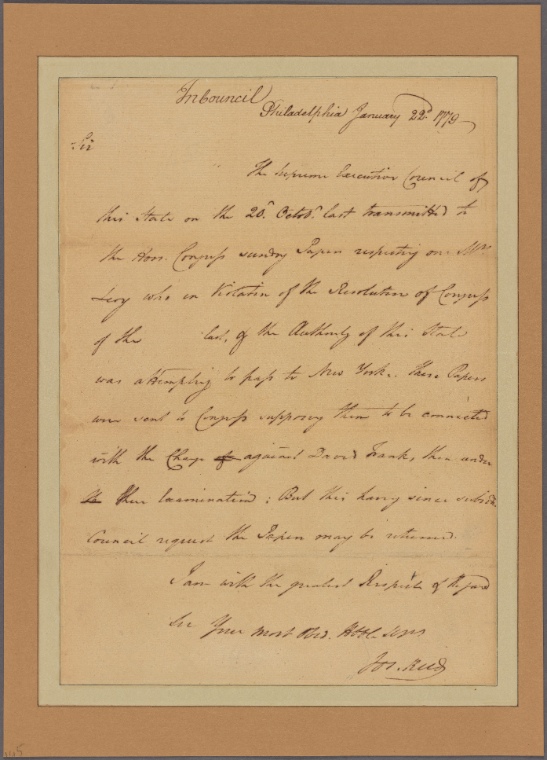 In Council
Philadelphia January 22d 1779
Sir
The Supreme Executive Council of
this State on the 20th Octobr last transmitted to
the Hon. Congress sundry Papers respecting one Mrs
Levy who in Violation of the Resolution of Congress
of the last, & the Authority of this State
was attempting to pass to New York. These Papers
were sent to Congress supposing them to be connected
with the Charge against David Franks, then under
their Examination; But this having since subsided
Council request the Papers may be returned.
I am with the greatest Respect & Regard
Sir Your most Obed. Hbl. Serv
Jos. Reed